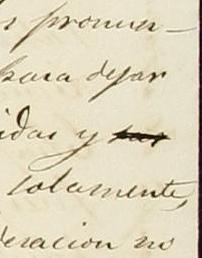 s pronun-
para dejar
idas y
solamente,
deracion no